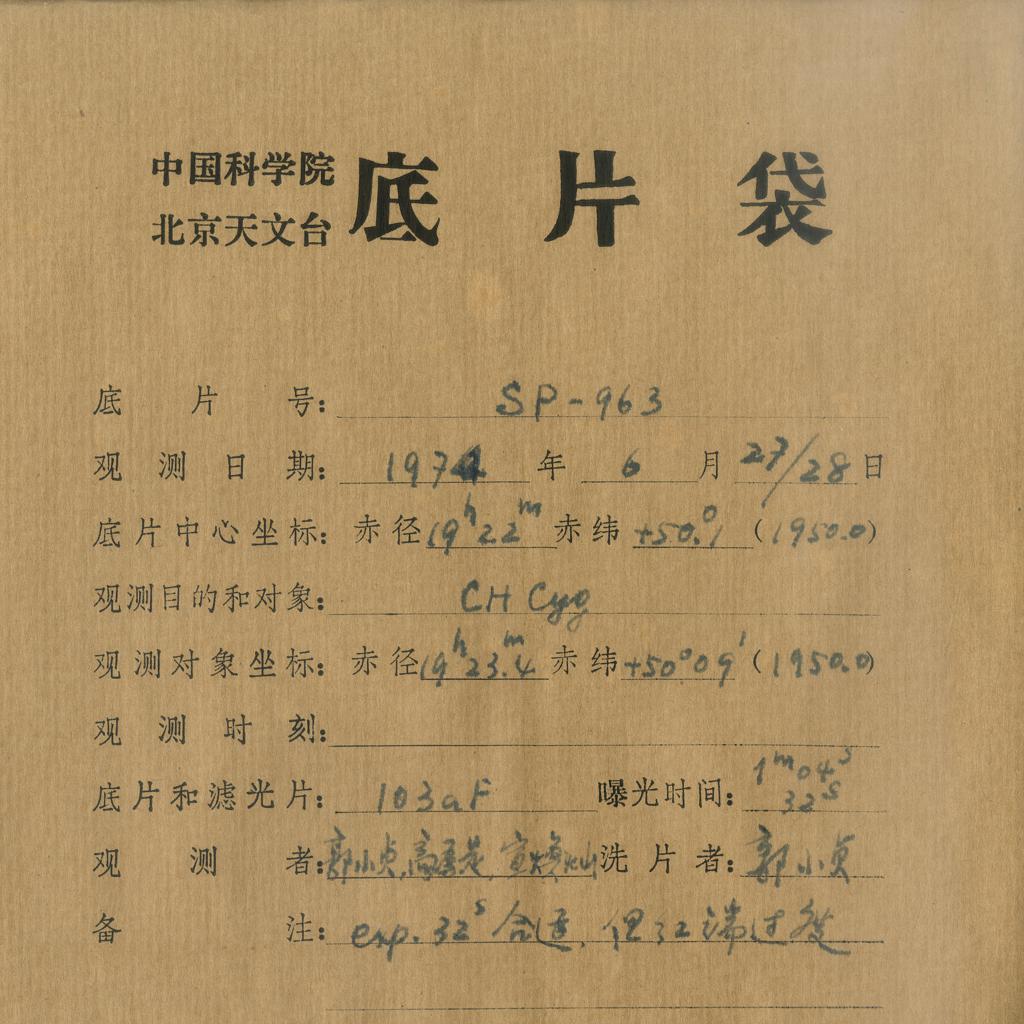 中国科学院
北京天文台
底片袋
底片号: SP-963
观测日期: 1974 年 6 月 27/28 日
底片中心坐标: 赤径 19h22m 赤纬 +50.°1 (1950.0)
观测目的和对象: CH Cyg
观测对象坐标: 赤径 19h23m.4 赤纬 +50°09′ (1950.0)
观测时刻:
底片和滤光片: 103aF 曝光时间: 1m04s 32s
观测者: 郭小贞, 宣焕灿 洗片者: 郭小贞
备注: exp. 32s 合适, 但红端过